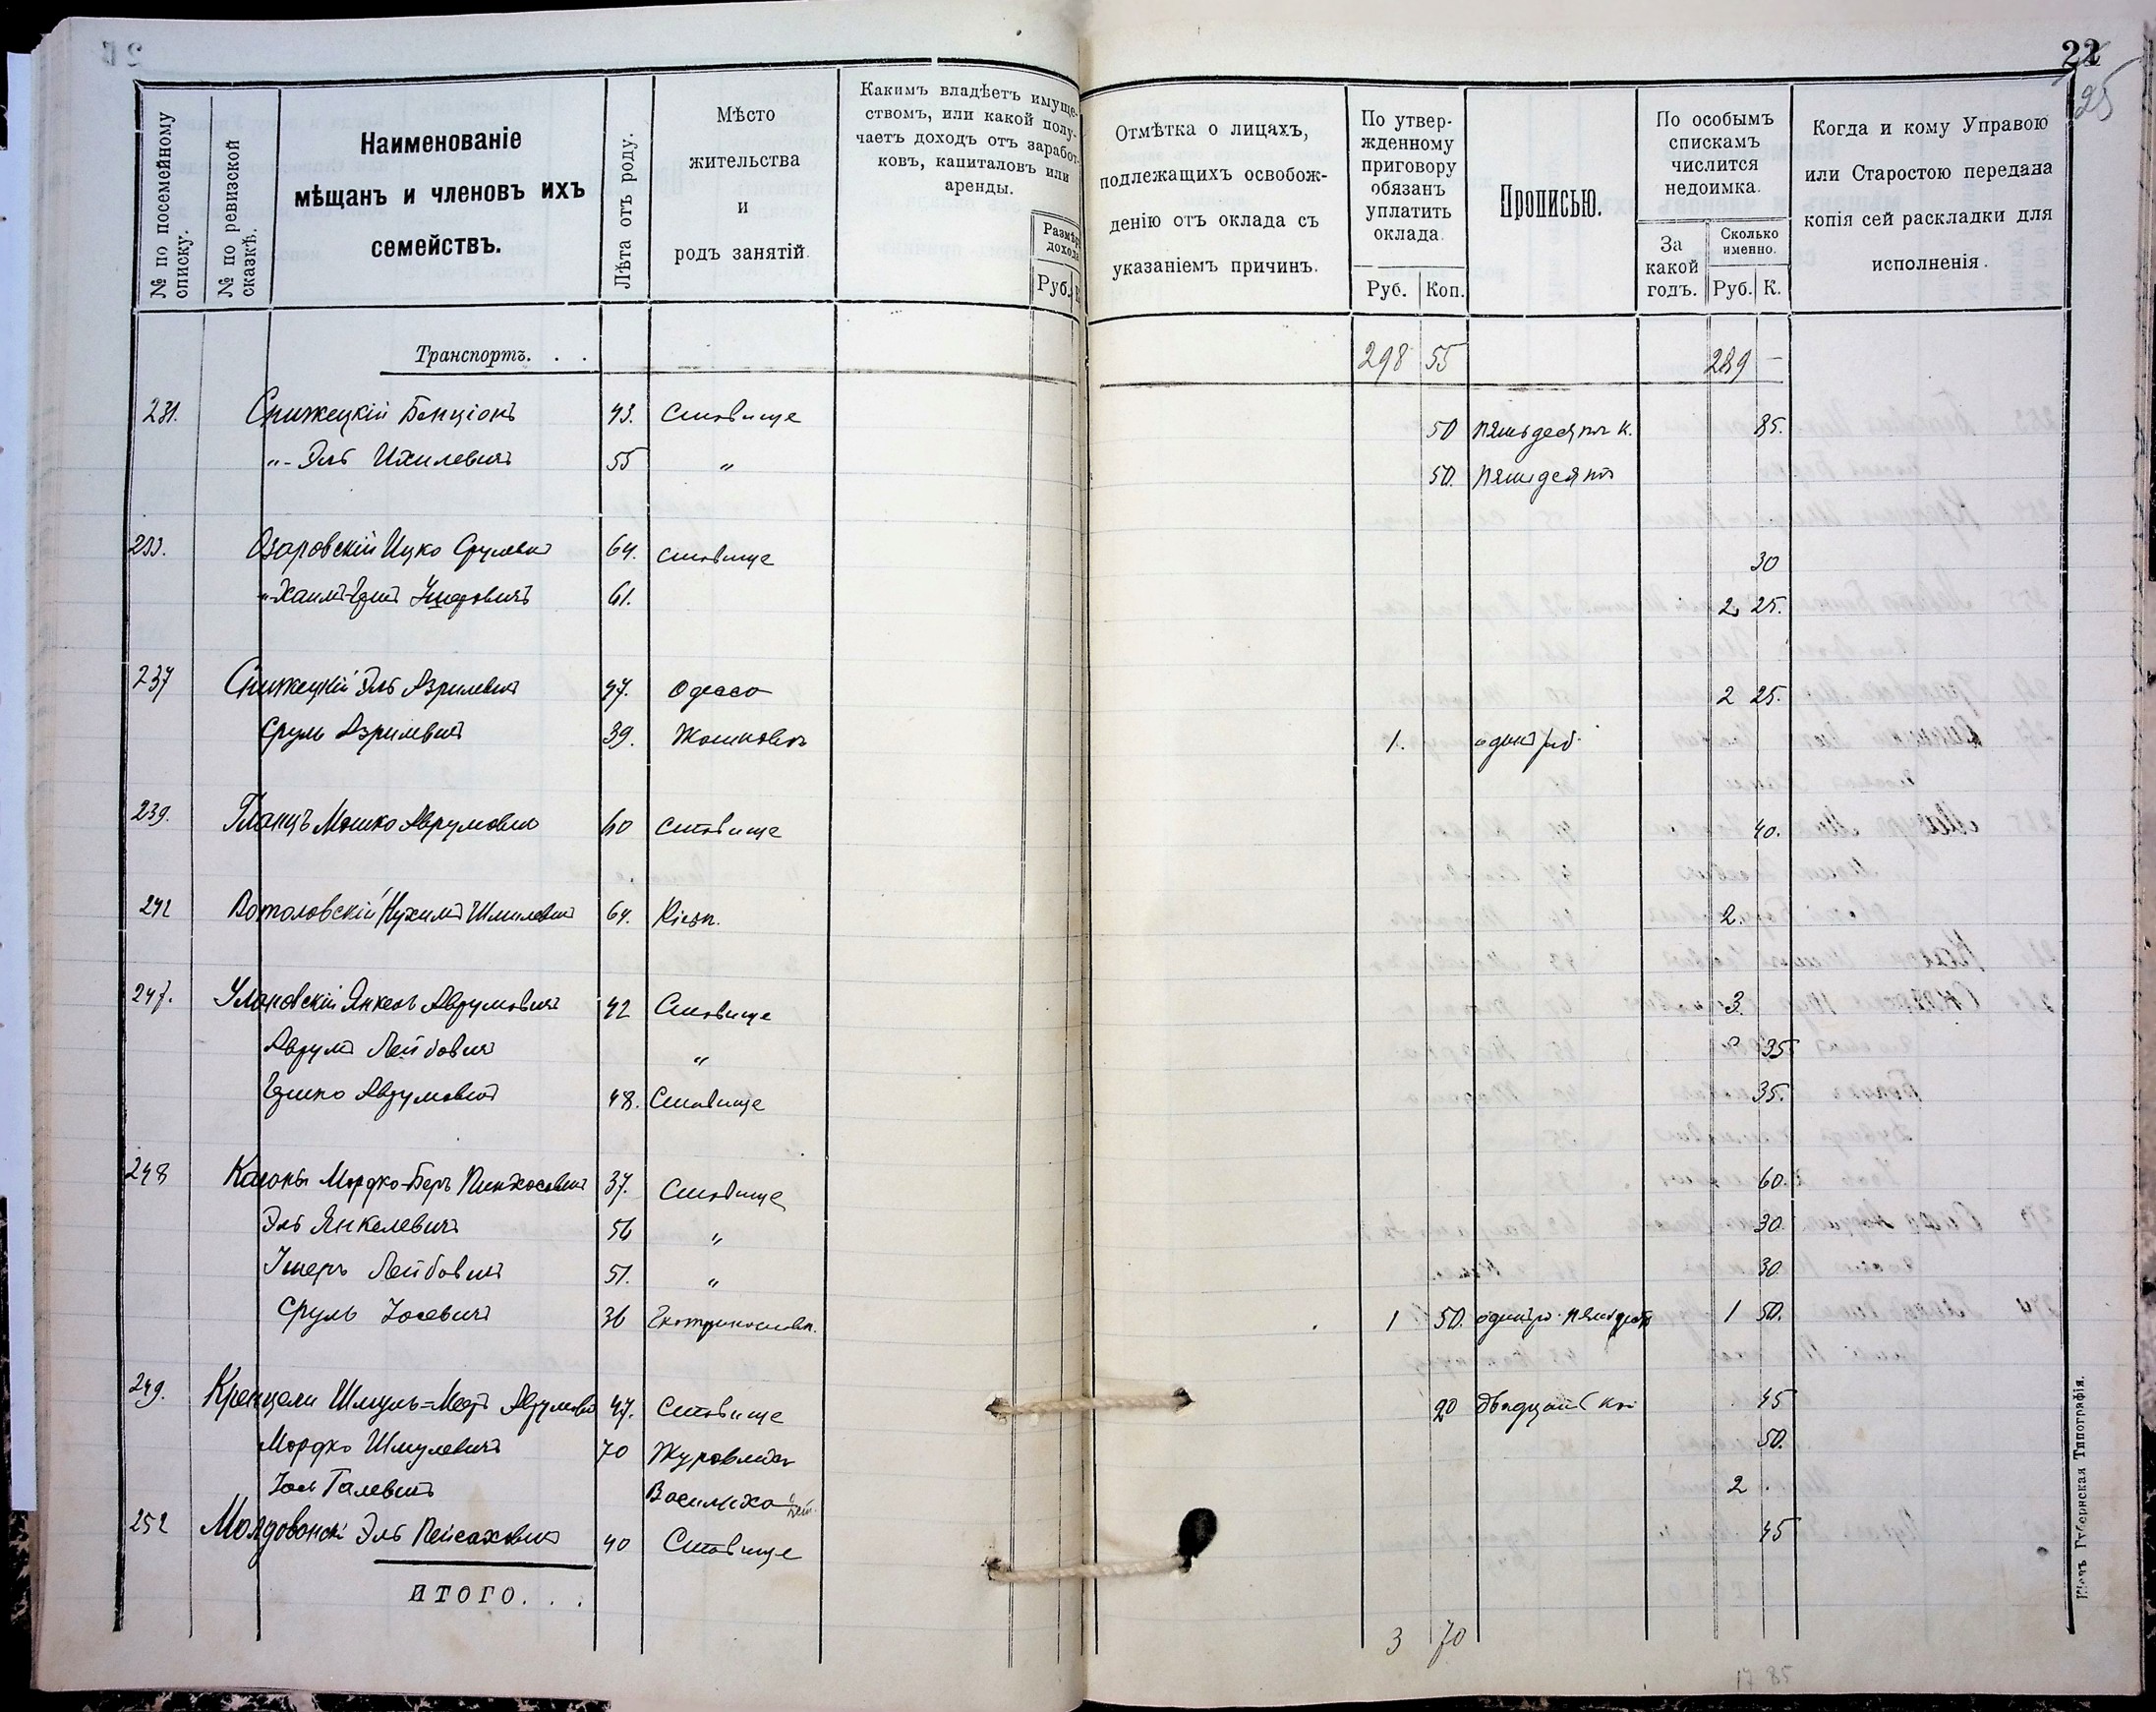 22
25
№ по посемейному списку.
№ по ревизской сказкѣ.
Наименованіе
мѣщанъ и членовъ ихъ
семействъ.
Лѣта отъ роду.
Мѣсто
жительства
и
родъ занятій.
Какимъ владѣетъ имуще-
ствомъ, или какой полу-
чаетъ доходъ отъ заработ-
ковъ, капиталовъ или
аренды.
Размѣръ
дохода
Руб. К.
Отмѣтка о лицахъ,
подлежащихъ освобож-
денію отъ оклада съ
указаніемъ причинъ.
По утвер-
жденному
приговору
обязанъ
уплатить
оклада.
Руб. Коп.
Прописью.
По особымъ
спискамъ
числится
недоимка.
За
какой
годъ.
Сколько
именно.
Руб. К.
Когда и кому Управою
или Старостою передана
копія сей раскладки для
исполненія.
Транспортъ. . . 298 55 289 —
231. Снижецкій Бенціонъ 43. Ставище 50 пятьдесят к. 85.
"- Эль Ихилевичъ 55 " 50. пятьдесят
233. Озаровскій Ицко Срулевич 64. Ставище 30
"-Хаимъ- Ушеровичъ 61. 2 25.
237 Снижецкій Эль Азрилевич 47. Одесса 2 25.
Сруль Азрилевич 39. Жашковъ 1. один руб.
239. Гланцъ Мошко Аврумович 60 Ставище 40.
242 Нухимъ Шмилевич 64. Кіевъ. 2.
247. Улановскій Янкель Аврумовичъ 42 Ставище 3.
Аврумъ Лейбович " 35
Гершко Аврумович 48. Ставище 35.
248 Каганъ Мордко-Беръ Пинхасович 37. Ставище 60.
Эль Янкелевичъ 56 " 30.
Ушеръ Лейбович 51. " 30.
Сруль Іосевичъ 36 Екатеринославъ. 1 50. один р. пятьдесят 1 50.
249. Шмуль= Аврумович 47. Ставище 20 двадцать ко. 45
Мордко Шмулевичъ 70 50.
Василиха 2.
252 Молдованскі Эль Пейсахович 40 Ставище 45
ИТОГО. . . 3 70
17 85
Кіевъ Губернская Типографія.